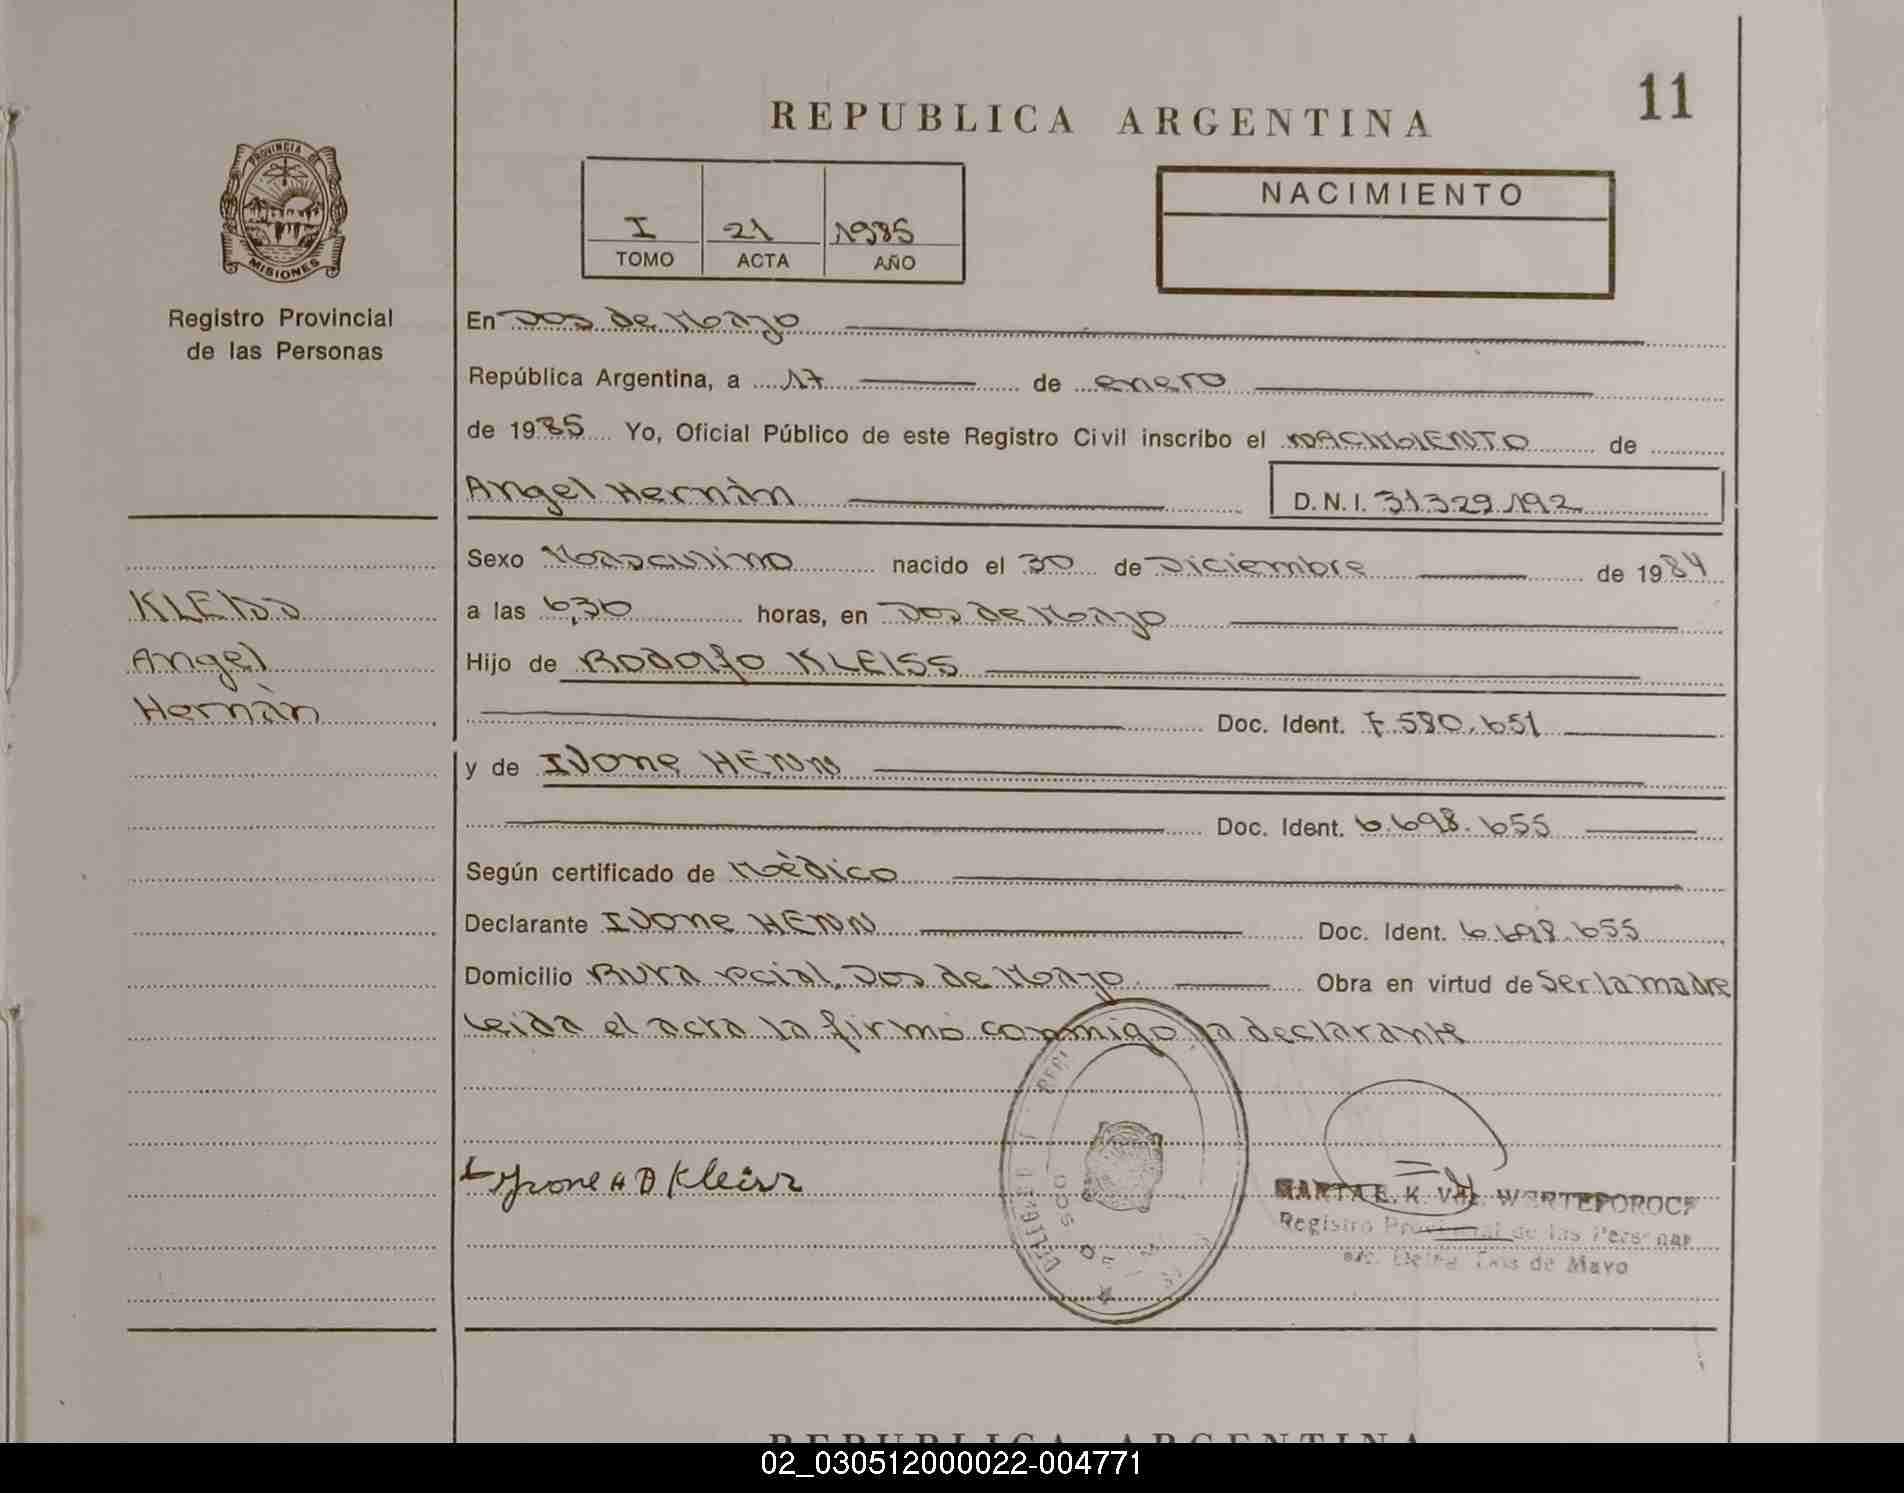 11
REPUBLICA ARGENTINA
PROVINCIA DE
MISIONES
Registro Provincial
de las Personas
I 21 1985
TOMO ACTA AÑO
NACIMIENTO
En Dos de Mayo
República Argentina, a 17 de enero
de 1985 Yo, Oficial Público de este Registro Civil inscribo el NACIMIENTO de
Angel Hernàn D.N.I. 31.329.192
Sexo Masculino nacido el 30 de Diciembre de 1984
a las 6,30 horas, en Dos de Mayo
Hijo de Rodolfo KLEISS
Doc. Ident. 7.580.651
y de Ivone HENN
Doc. Ident. 6.698.655
Según certificado de Mèdico
Declarante Ivone HENN Doc. Ident. 6.698.655
Domicilio Dos de Mayo Obra en virtud de Ser la madre
Leida el acta la firmò conmigo la declarante
KLEISS
Angel
Hernàn
Kleiss
MARTA E. K.
Registro Provincial de las Personas
Dos de Mayo
REPUBLICA ARGENTINA
02_030512000022-004771